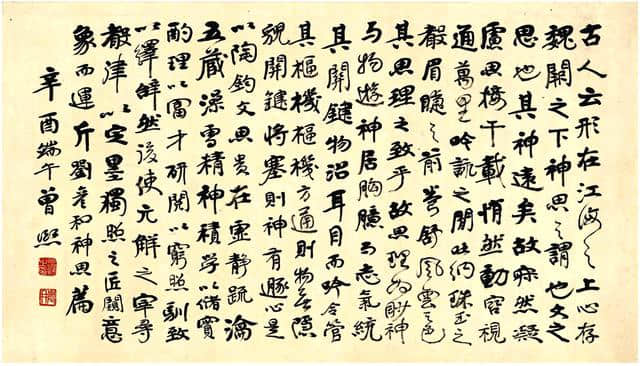 古人云形在江海之上心存
魏闕之下神思之謂也文之
思也其神遠矣故寂然凝
慮思接千載悄然動容視
通萬里吟詠之間吐納珠玉之
聲眉睫之前卷舒風雲之色
其思理之致乎故思理為妙神
与物遊神居胸臆而志氣統
其關鍵物沿耳目而令管
其樞機樞機方通則物無隱
貌關鍵將塞則神有遯心是
以陶鈞文思貴在虛靜疏瀹
五藏澡雪精神積學以儲寶
酌理以富才研閱以窮照馴致
以繹辭然後使元解之宰尋
聲律以定墨獨照之匠闚意
象而運斤劉彥和神思篇
辛酉端午曾熙